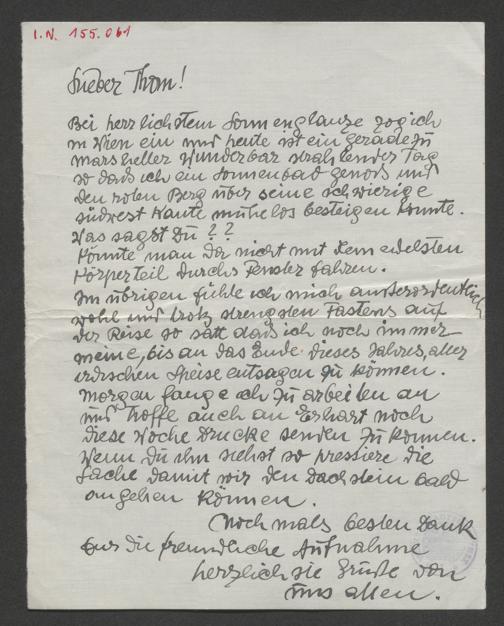 I.N. 155.061
Lieber Thom!
Bei herrlichstem Sonnenglanze zog ich
in Wien ein und heute ist ein geradezu
märsheller wunderbar strahlender Tag
so dass ich ein Sonnenbad genoss und
den roten Berg über seine schwierige
südwest Kante mühelos besteigen konnte.
Was sagst Du??
Könnte man da nicht mit dem edelsten
Körperteil durchs Fenster fahren.
Im übrigen fühle ich mich außerordentlich
wohl und trotz strengsten Fastens auf
der Reise so satt dass ich noch immer
meine, bis an das Ende dieses Jahres, aller
irdischen Speise entsagen zu können.
Morgen fange ich zu arbeiten an
und hoffe auch an Erhart noch
diese Woche Drucke senden zu können.
Wenn Du ihn siehst so pressiere die
Sache damit wir den Dachstein bald
angehen können.
Nochmals besten Dank
für die freundliche Aufnahme
herzlichste Grüße von
uns allen.